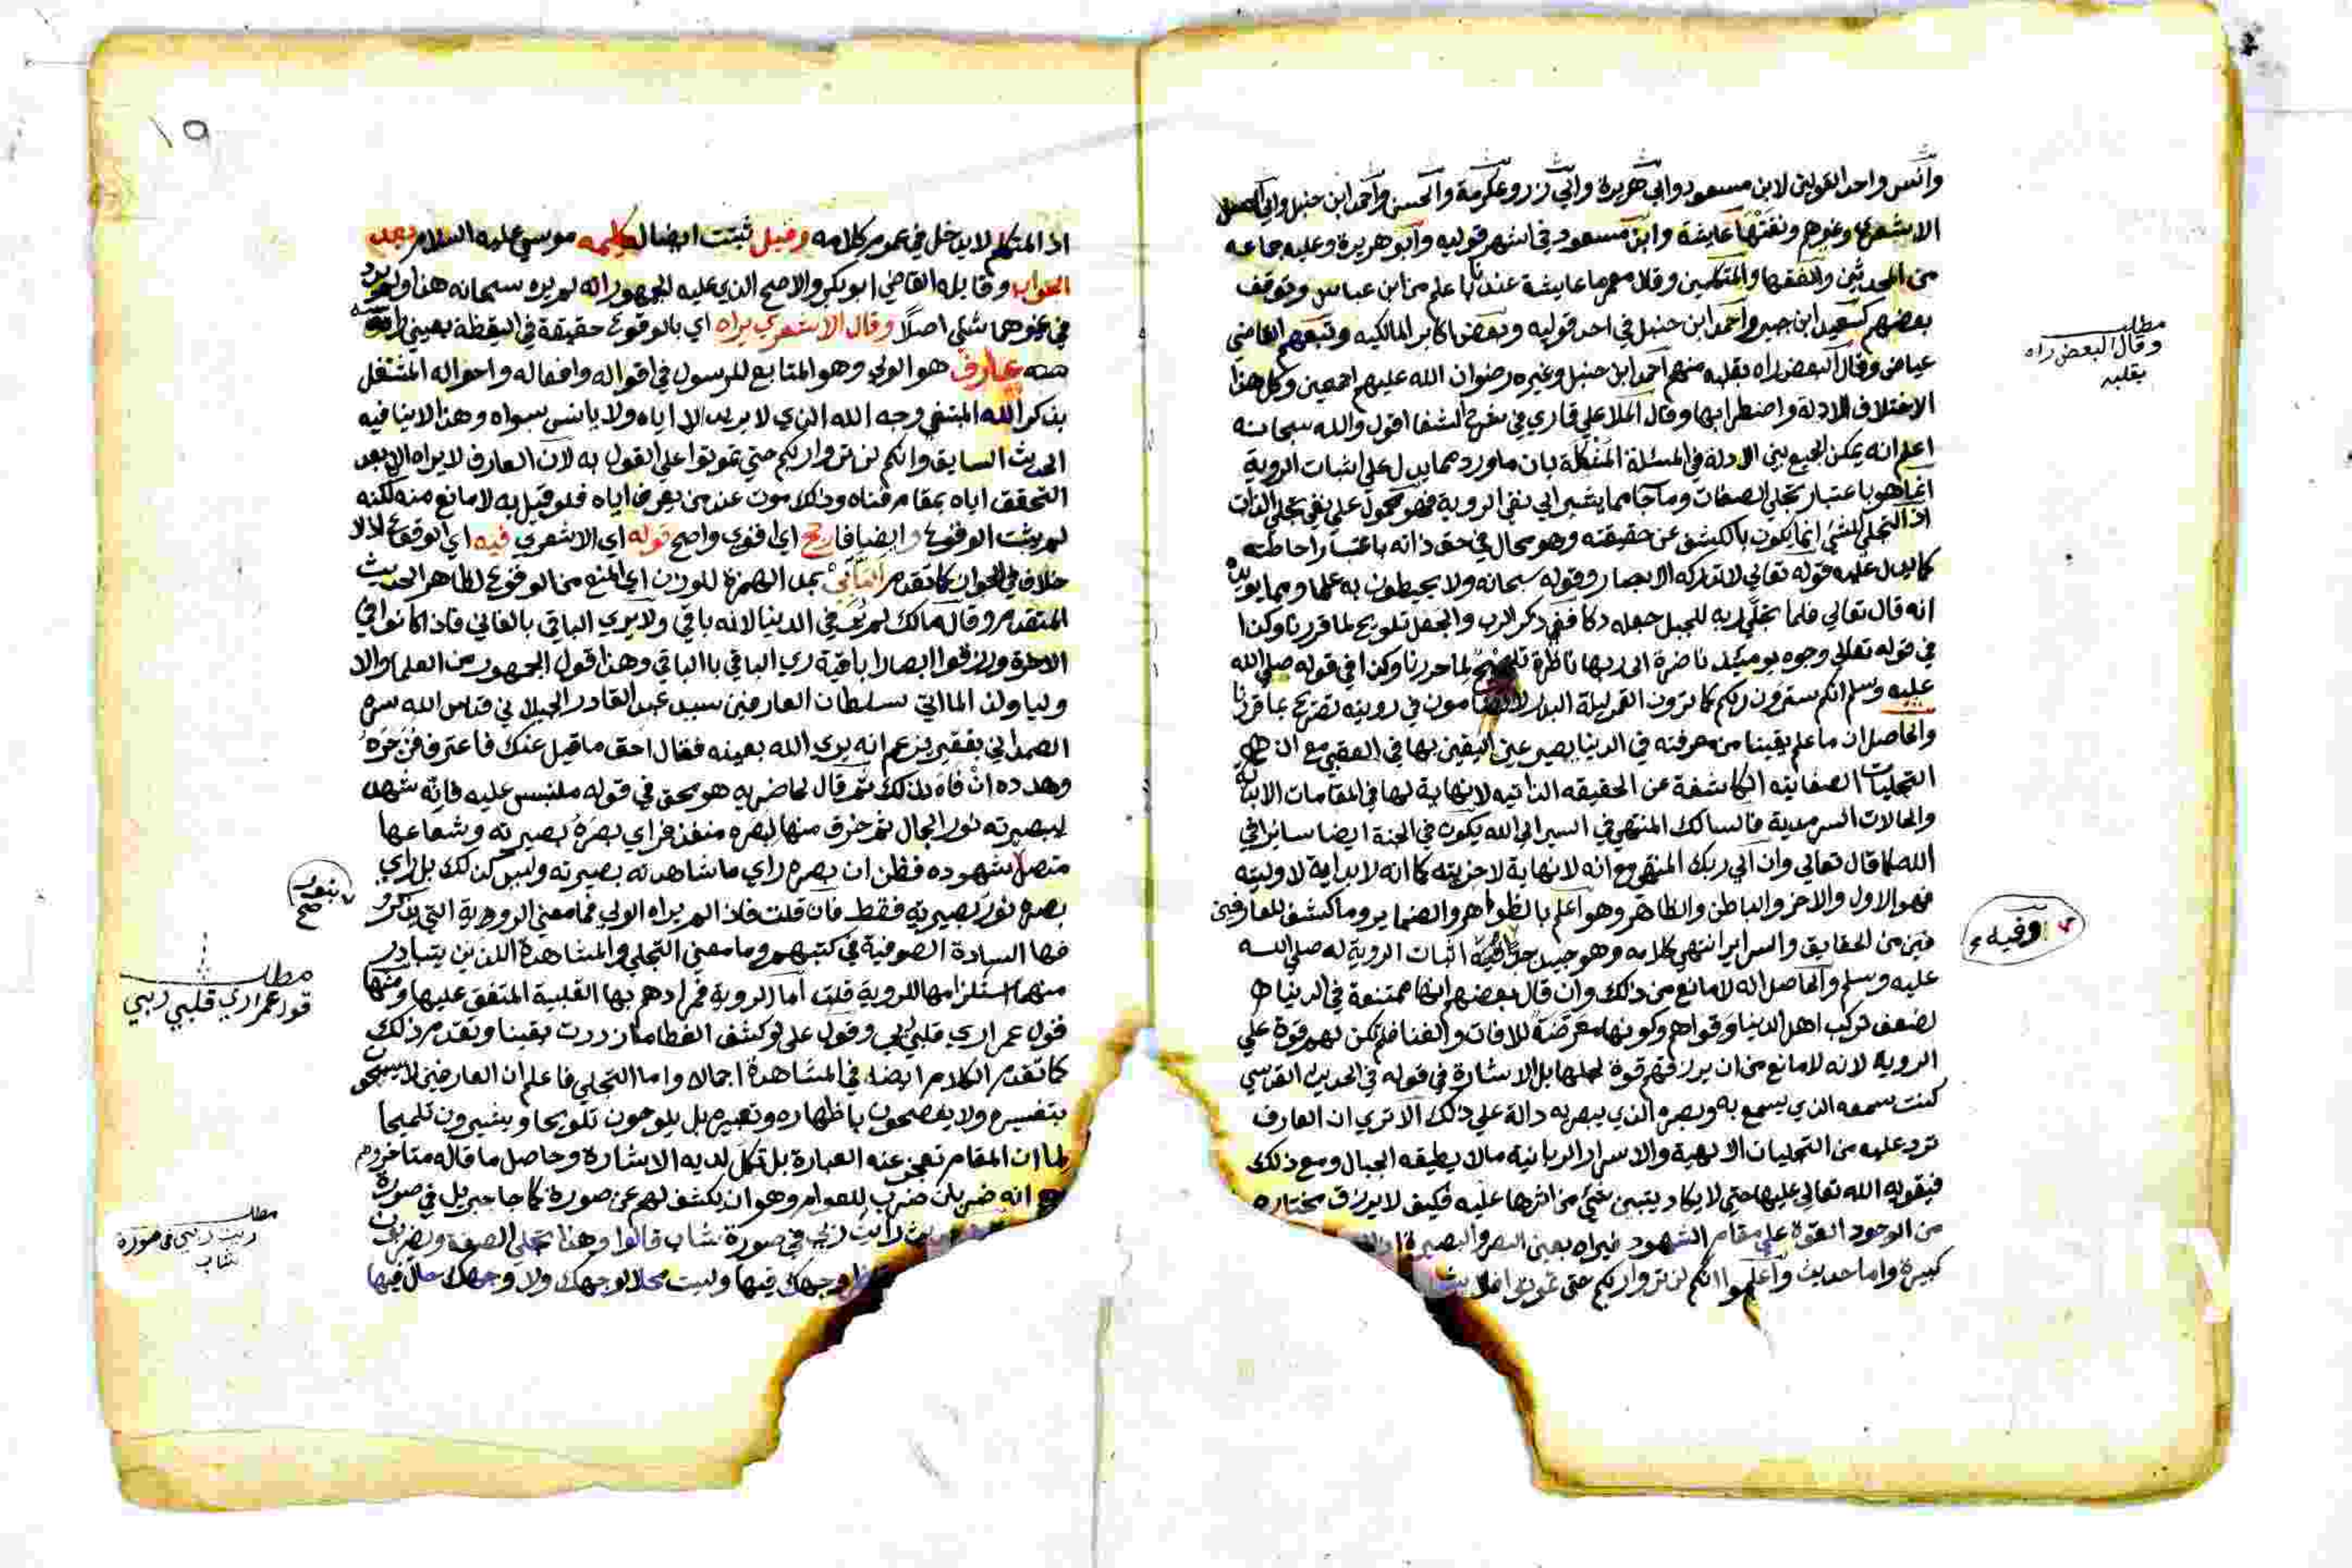 وأنس واحد القولين لابن مسعود وابي هريرة وابي ذر وعكرمة والحسن وأحمد ابن حنبل وابي الحسن
الاشعري وغيرهم ونفتها عايشة وابن مسعود في اشهر قوليه وأبو هريرة وعليه جماعه
من المحدثين والفقها والمتكلمين وقال معمر ما عايشة عندنا با علم من ابن عباس وتوقف
بعضهم كسعيد ابن جبير وأحمد ابن حنبل في احد قوليه وبعض اكابر المالكيه وتبعهم القاضي
عياض وقال البعض راه بقلبه منهم أحمد ابن حنبل وغيره رضوان الله عليهم اجمعين وكل هذا
الاختلاف للادلة واضطرابها وقال الملا علي قاري في شرح الشفا اقول والله سبحانه
اعلم انه يمكن الجمع بين الادلة في المسئلة المشكلة بان ما ورد مما يدل على اثبات الروية
انما هو باعتبار تجلي الصفات وما جا مما يشير الي نفي الروية فهو محمول علي نفي تجلي الذات
اذ التجلي للشئ انما يكون بالكشف عن حقيقته وهو محال في حق ذاته باعتبار احاطته
كما يدل عليه قوله تعالي لا تدركه الابصار وقوله سبحانه ولا يحيطون به علما ومما يويده
انه قال تعالي فلما تجلي ربه للجبل جعله دكا ففي ذكر الرب والجعل تلويح لما قررنا وكذا
في قوله تعالي وجوه يوميئذ ناضرة الى ربها ناظرة لما حررنا وكذا في قوله صلي الله
عليه وسلم انكم سترون ربكم كما ترون القمر ليلة البدر لا تضامون في رويته تصريح بما قررنا
والحاصل ان ما علم يقينا من معرفته في الدنيا يصير عين اليقين بها في العقبي مع ان هذه
التجليات الصفاتيه الكاشفة عن الحقيقه الذاتيه لا نهاية لها في المقامات الابديه
والحالات السرمدية فالسالك المنتهي في السير الى الله يكون في الجنة ايضا سايرا في
الله كما قال تعالي وان الي ربك المنتهي مع انه لا نهاية لاخريته كما انه لا بداية لاوليته
فهو الاول والاخر والباطن والظاهر وهو اعلم بالظواهر والضماير وما كشف للعارفين
من الحقايق والسراير انتهي كلامه وهو جيد جدا اثبات الروية له صلي الله
عليه وسلم والحاصل انه لا مانع من ذلك وان قال بعضهم انها ممتنعة في الدنيا
لضعف تركيب اهل الدنيا وقواهم وكونها معرضة للافات والفنا فلم تكن لهم قوة علي
الروية لانه لا مانع من ان يرزقهم قوة لحملها بل الاشارة في قوله في الحديث القدسي
كنت سمعه الذي يسمع به وبصره الذي يبصر به دالة علي ذلك الا تري ان العارف
ترد عليه من التجليات الالهية والاسرار الربانية مالا يطيقه الجبال ومع ذلك
فيقويه الله تعالي عليها حتي لا يكاد يتبين شئ من اثرها عليه فكيف لا يرزق مختاره
من الوجود القوة علي مقام الشهود فيراه بعين البصر والبصيرة
كبيرة واما حديث واعلموا انكم لن تروا ربكم حتي تموتوا فلا
مطلب
وقال البعض راه
بقلبه
وفيه
١٩
اذ المتكلم لا يدخل في عموم كلامه وقيل ثبتت ايضا لكليمه موسي عليه السلام بعد
الجواب وقايله القاضي ابو بكر والاصح الذي عليه الجمهور انه لم يره سبحانه هنا ولم يرد
في غيرهما شئ اصلا وقال الاشعري يراه اي بالوقوع حقيقة في اليقظة بعيني راسه
عارف هو الولي وهو المتابع للرسول في اقواله وافعاله واحواله المشتغل
بذكر الله المبتغي وجه الله الذي لا يريد الا اياه ولا يانس بسواه وهذا لا ينافيه
الحديث السابق وانكم لن تروا ربكم حتي تموتوا علي القول به لان العارف لا يراه الا بعد
التحقق اياه بمقام فناه وذلك موت عند من يعرف اياه فلو قيل به لا مانع منه لكنه
لم يثبت الوقوع وايضا فارجح اي اقوي واصح قوله اي الاشعري فيه اي الوقوع اذ لا
خلاف في الجواز كما تقدم بمد الهمزة للوزن اي المنع من الوقوع لظاهر الحديث
المتقدم وقال مالك لم يُر في الدنيا لانه باقي ولا يري الباقي بالفاني فاذا كانوا في
الاخرة ورزقوا ابصارا باقية ري الباقي باالباقي وهذا قول الجمهور من العلما والا
وليا ولذا لما اتي سلطان العارفين سيد عبد القادر الجيلاني قدس الله سره
الصمداني بفقير يزعم انه يري الله بعينه فقال احق ما قيل عنك فاعترف فزجره
وهدده ان فاه بذلك ثم قال لحاضريه هو محق في قوله ملتبس عليه فانه شهد
ببصيرته نور الجمال ثم خرق منها لبصره منفذ فراي بصره بصيرته وشعاعها
متصل بشهوده فظن ان بصره راي ما شاهدته بصيرته وليس كذلك بل راي
بصره نور بصيرته فقط فان قلت فاذا لم يراه الولي فما معني الروية التي يذكر
فيها السادة الصوفية في كتبهم وما معني التجلي والمشاهدة اللذين يتبادر
منهما استلزامها للروية قلت اما الروية فمرادهم بها القلبية المتفق عليها ومنها
قول عمر اري قلبي ربي وقول علي لو كشف الغطا ما ازددت يقينا وتقدم ذلك
كما تقدم الكلام ايضا في المشاهدة اجمالا واما التجلي فاعلم ان العارفين لا يسمحون
بتفسيره ولا يفصحون باظهاره وتعبيره بل يلوحون تلويحا ويشيرون تلميحا
لما ان المقام تعجز عنه العبارة بل تكل لديه الاشارة وحاصل ما قاله متاخروهم
انه ضربان ضرب للعوام وهو ان يكشف لهم عن صورة كما جا جبريل في صورة
رايت ربي في صورة شاب قالوا وهذا تجلي الصفة ويضربون
وجهك فيها وليست محلا لوجهك ولا وجهك حال فيها
بنور
صح
مطلب
قول عمر اري قلبي ربي
مطلب
ريت ربي في صورة
شاب